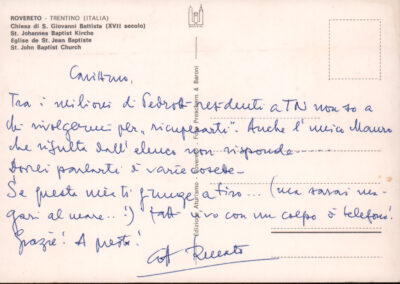 ROVERETO - TRENTINO (ITALIA)
Chiesa di S. Giovanni Battista (XVII secolo)
St. Johannes Baptist Kirche
Eglise de St. Jean Baptiste
St. John Baptist Church
Carissimo,
Tra i milioni di Pedrotti residenti a TN non so a
chi rivolgermi per "recuperarti". Anche l'unico Mauro
che risulta dall'elenco non risponde.
Vorrei parlarti di varie cosette.
Se questa mia ti giunge a tiro... (ma sarai ma-
gari al mare...!) fatti vivo con un colpo di telefono!
Grazie! A presto!